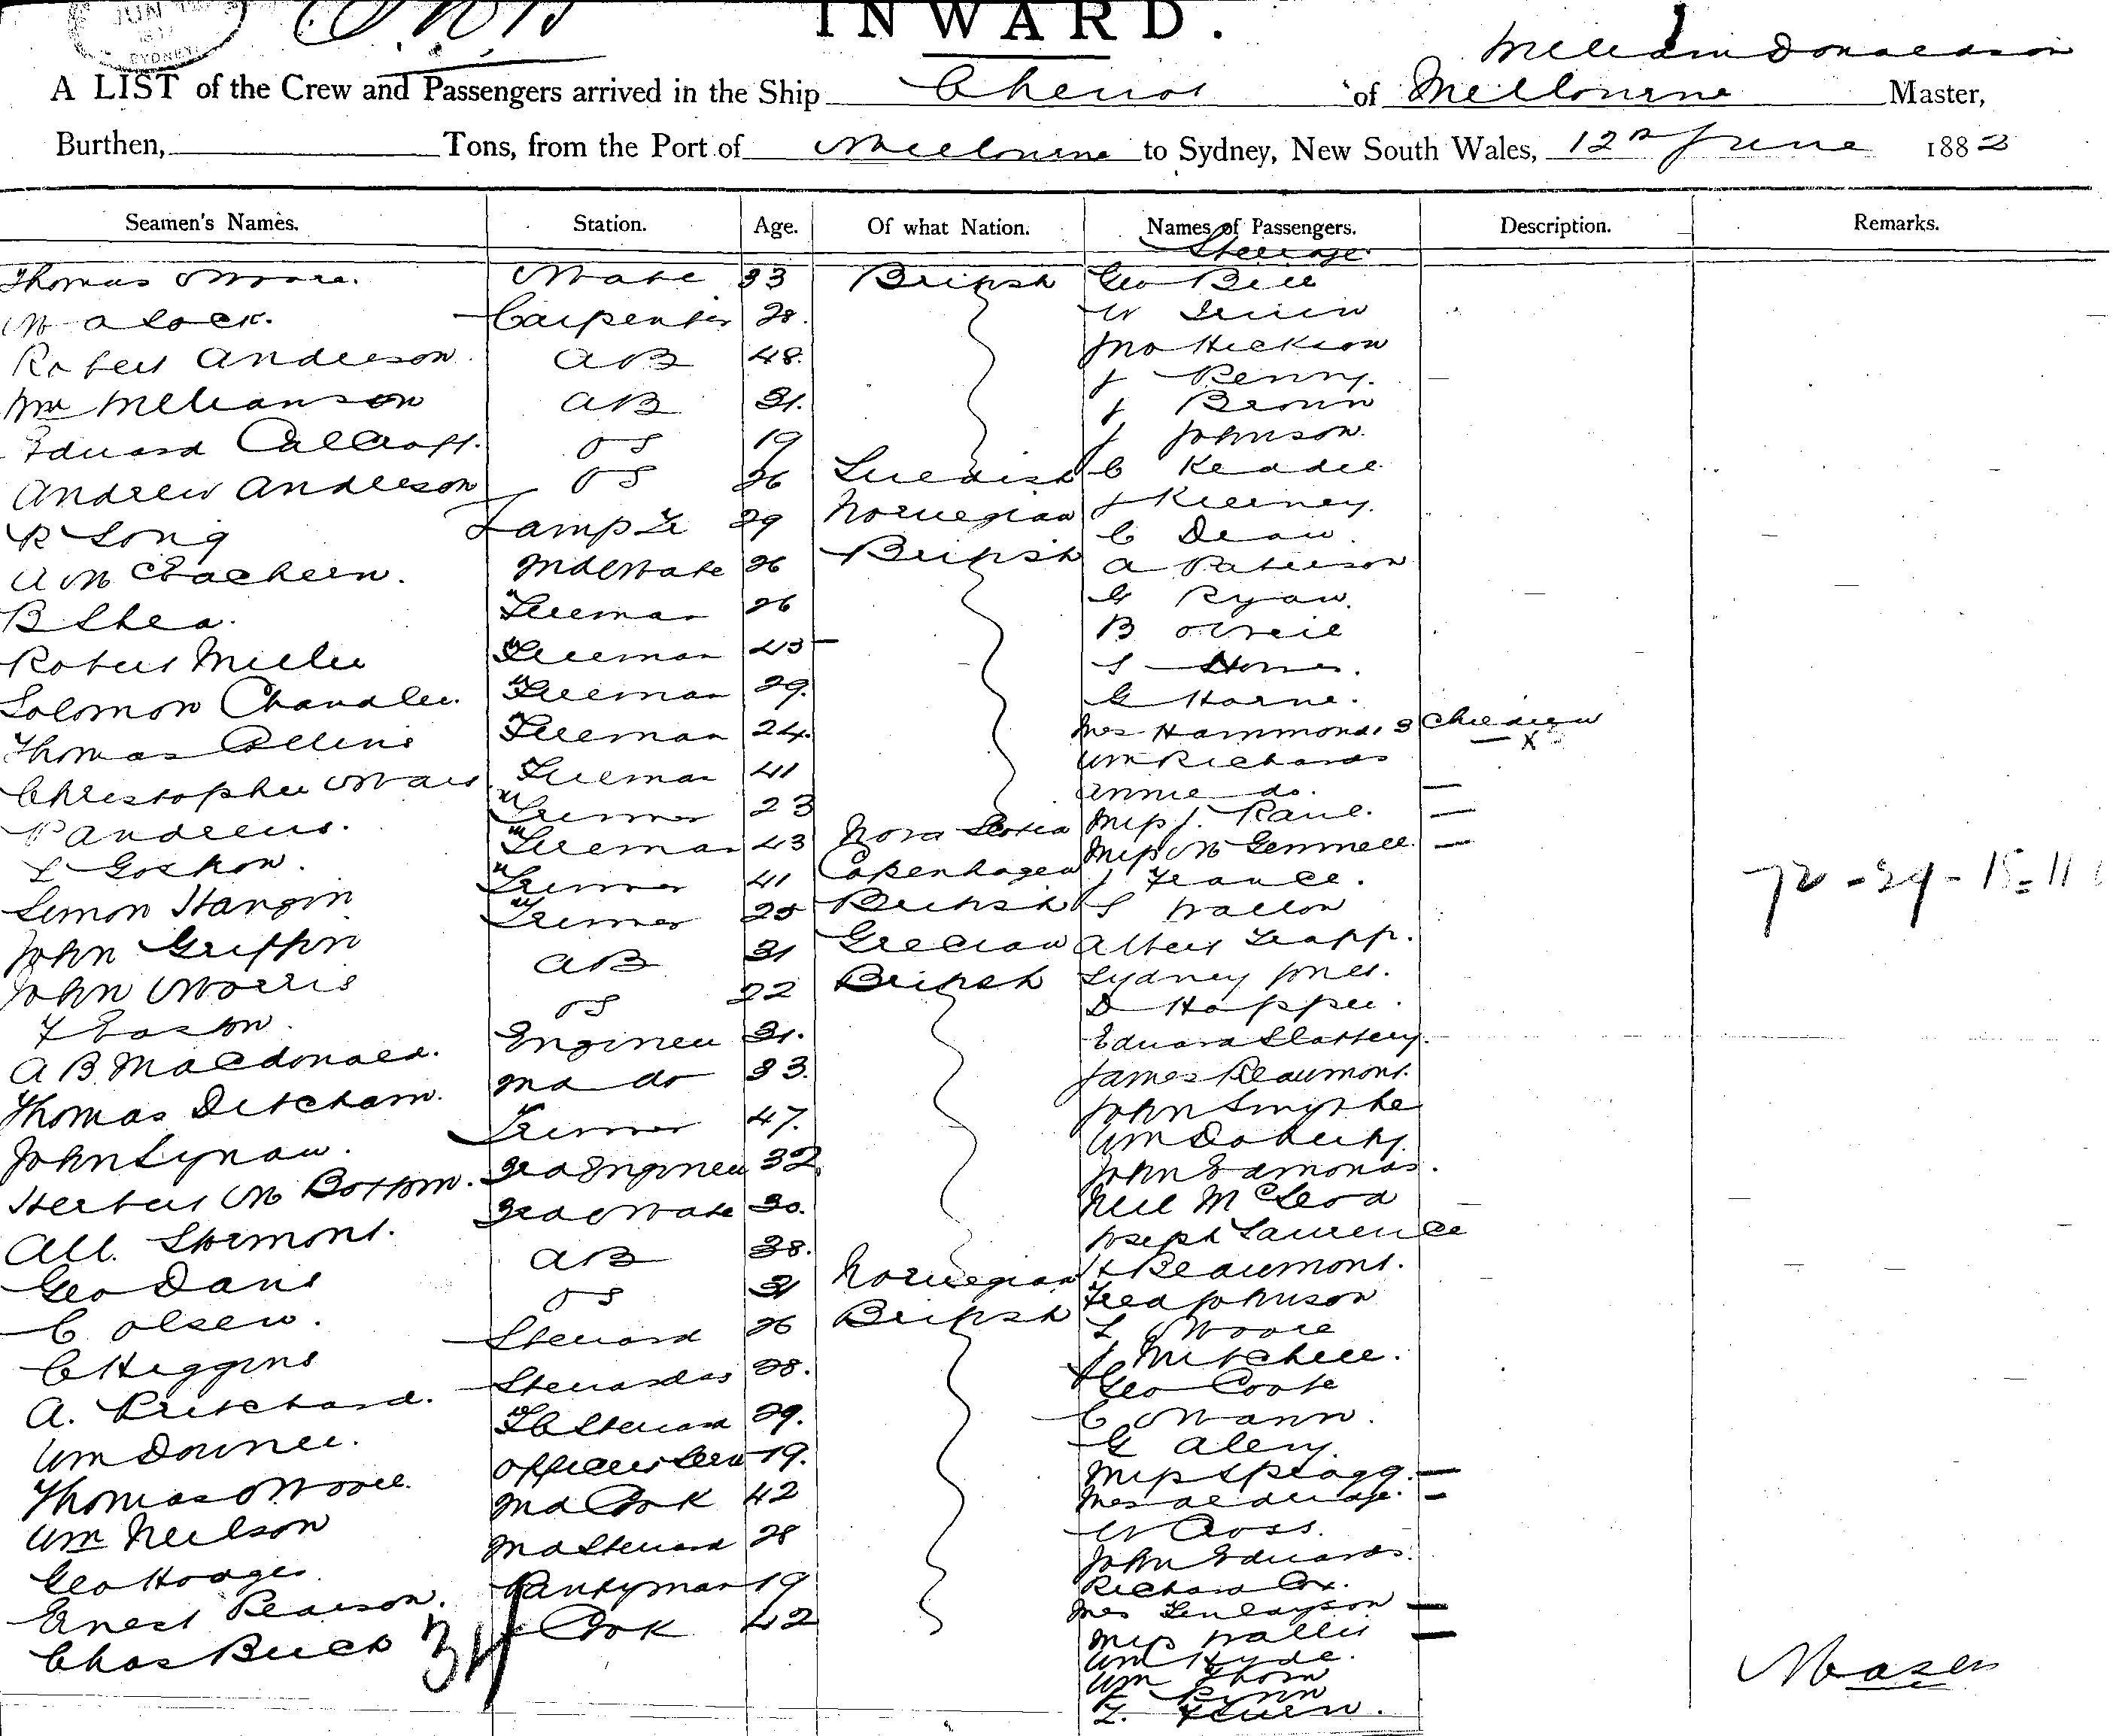 JUN
SYDNEY
INWARD.
William Donaldson
A LIST of the Crew and Passengers arrived in the Ship Cheviot of Melbourne Master,
Burthen, Tons, from the Port of Melbourne to Sydney, New South Wales, 12th June 1882
Seamen's Names. Station. Age. Of what Nation. Names of Passengers. Description. Remarks.
Steerage
Thomas Moore. Mate 33 British Geo Bell
Carpenter 28. W
Robert Anderson. AB 48. Jno Hickson
Wm AB 31. J Penny.
Edward Calcroft. OS 19 J Brown
Andrew Anderson OS 26 Swedish J Johnson.
R Long Lamp Tr 29 Norwegian C Keadle
A McEachern. 2nd Mate 26 British J Kierney.
B Shea. Fireman 26 C Dean.
Robert Miller Fireman 43 A Paterson
Solomon Chandler. Fireman 29. G Ryan.
Thomas Collins Fireman 24. B O'Neil
Christopher Fireman 41 S
P Andrews. Trimmer 23 G Horne.
L Goskon. Fireman 43 Nova Scotia Mrs Hammond, 3 Children
x
Simon Trimmer 41 Copenhagen Wm Richards
John Griffin Trimmer 25 British Annie do.
John Morris AB 31 Grecian Miss J.
F Easton. OS 22 British Miss M Gemmell.
A B Macdonald. Engineer 31. J France.
Thomas Ditcham. 2nd do 33. S Wallon
John Lynaw. Trimmer 47. Albert Trapp.
Herbert M Bottom. 3rd Engineer 32 Sydney Jones.
All. Stormont. 3rd Mate 30. D Hopper.
Geo Davis AB 38. Edward Slattery.
C Olsen. OS 31 Norwegian James Beaumont.
C Higgins Steward 26 British John Smythe
A. Pritchard. Stewardess 28. Wm Doherty
Wm Downee. F C Steward 29. John Edmonds.
Thomas Moore. Officers Serv 19. Neil McLeod
Wm Neilson 2nd Cook 42 Joseph Laurence
Geo Hodges 2nd Steward 28 H Beaumont.
Ernest Pearson. Pantryman 19 Fred Johnson
Chas Buck Cook 42 L Moore
34
J Mitchell.
Geo Coote
C Mann.
G Alery.
Miss Spragg.
Mrs
W Cross.
John Edwards.
Richard Cox.
Mrs Finlayson
Miss Wallis
Wm Hyde.
Wm Thorn
72 - 29 - 15 = 11